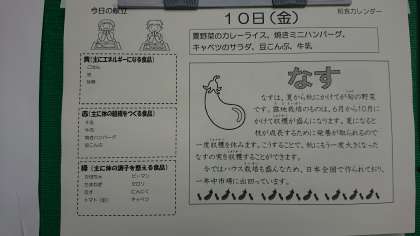 今日の献立
給食カレンダー
10日(金)
夏野菜のカレーライス、焼きミニハンバーグ、
キャベツのサラダ、豆こんぶ、牛乳
黄(主にエネルギーになる食品)
ごはん
油
赤(主に体の組織をつくる食品)
牛乳
牛肉
焼きハンバーグ
豆こんぶ
緑(主に体の調子を整える食品)
かぼちゃ ピーマン
たまねぎ セロリ
なす にんにく
トマト(缶) キャベツ
なす
なすは、夏から秋にかけてが旬の野菜
です。露地栽培のものは、6月から10月に
かけて収穫が盛んになります。夏になると
枝が成長するために栄養が取られるので
一度収穫を休みます。こうすることで、秋にもう一度大きくなった
なすの実を収穫することができます。
今ではハウス栽培も盛んなため、日本全国で作られており、
一年中市場に出回っています。